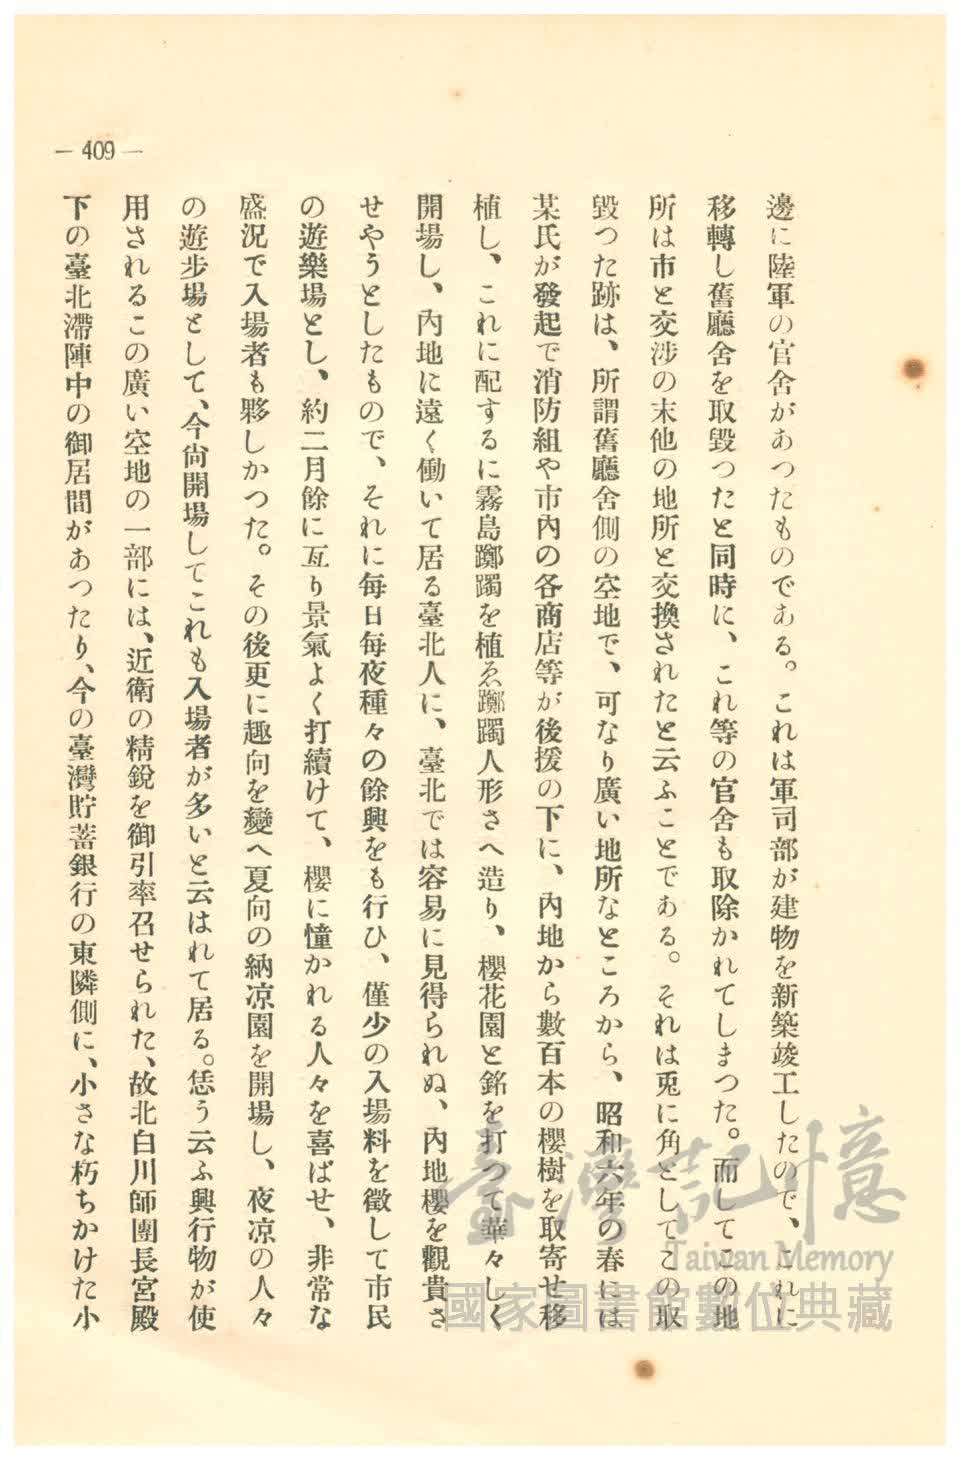 — 409 —
邊に陸軍の官舍があつたものである。これは軍司部が建物を新築竣工したので、これに
移轉し舊廳舍を取毀つたと同時に、これ等の官舍も取除かれてしまつた。而してこの地
所は市と交涉の末他の地所と交換されたと云ふことである。それは兎に角としてこの取
毀つた跡は、所謂舊廳舍側の空地で、可なり廣い地所なところから、昭和六年の春には
某氏が發起で消防組や市內の各商店等が後援の下に、內地から數百本の櫻樹を取寄せ移
植し、これに配するに霧島躑躅を植ゑ躑躅人形さへ造り、櫻花園と銘を打つて華々しく
開場し、內地に遠く働いて居る臺北人に、臺北では容易に見得られぬ、內地櫻を觀賞さ
せやうとしたもので、それに每日每夜種々の餘興をも行ひ、僅少の入場料を徵して市民
の遊樂場とし、約二月餘に亙り景氣よく打續けて、櫻に憧かれる人々を喜ばせ、非常な
盛況で入場者も夥しかつた。その後更に趣向を變へ夏向の納凉園を開場し、夜凉の人々
の遊步場として、今尙開場してこれも入場者が多いと云はれて居る。恁う云ふ興行物が使
用されるこの廣い空地の一部には、近衛の精銳を御引率召せられた、故北白川師團長宮殿
下の臺北滯陣中の御居間があつたり、今の臺灣貯蓄銀行の東隣側に、小さな朽ちかけた小
臺灣記憶
Taiwan Memory
國家圖書館數位典藏